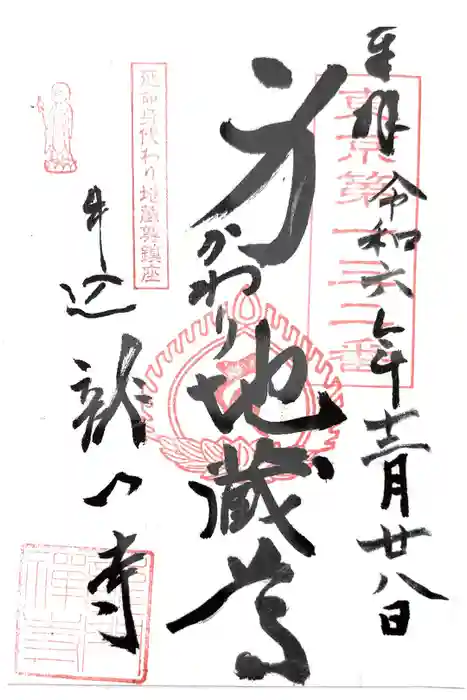 奉拝
令和六年十二月廿八日
東京第一三二番
身がわり地蔵尊
延命身代わり地蔵尊鎮座
牛込
龍門寺